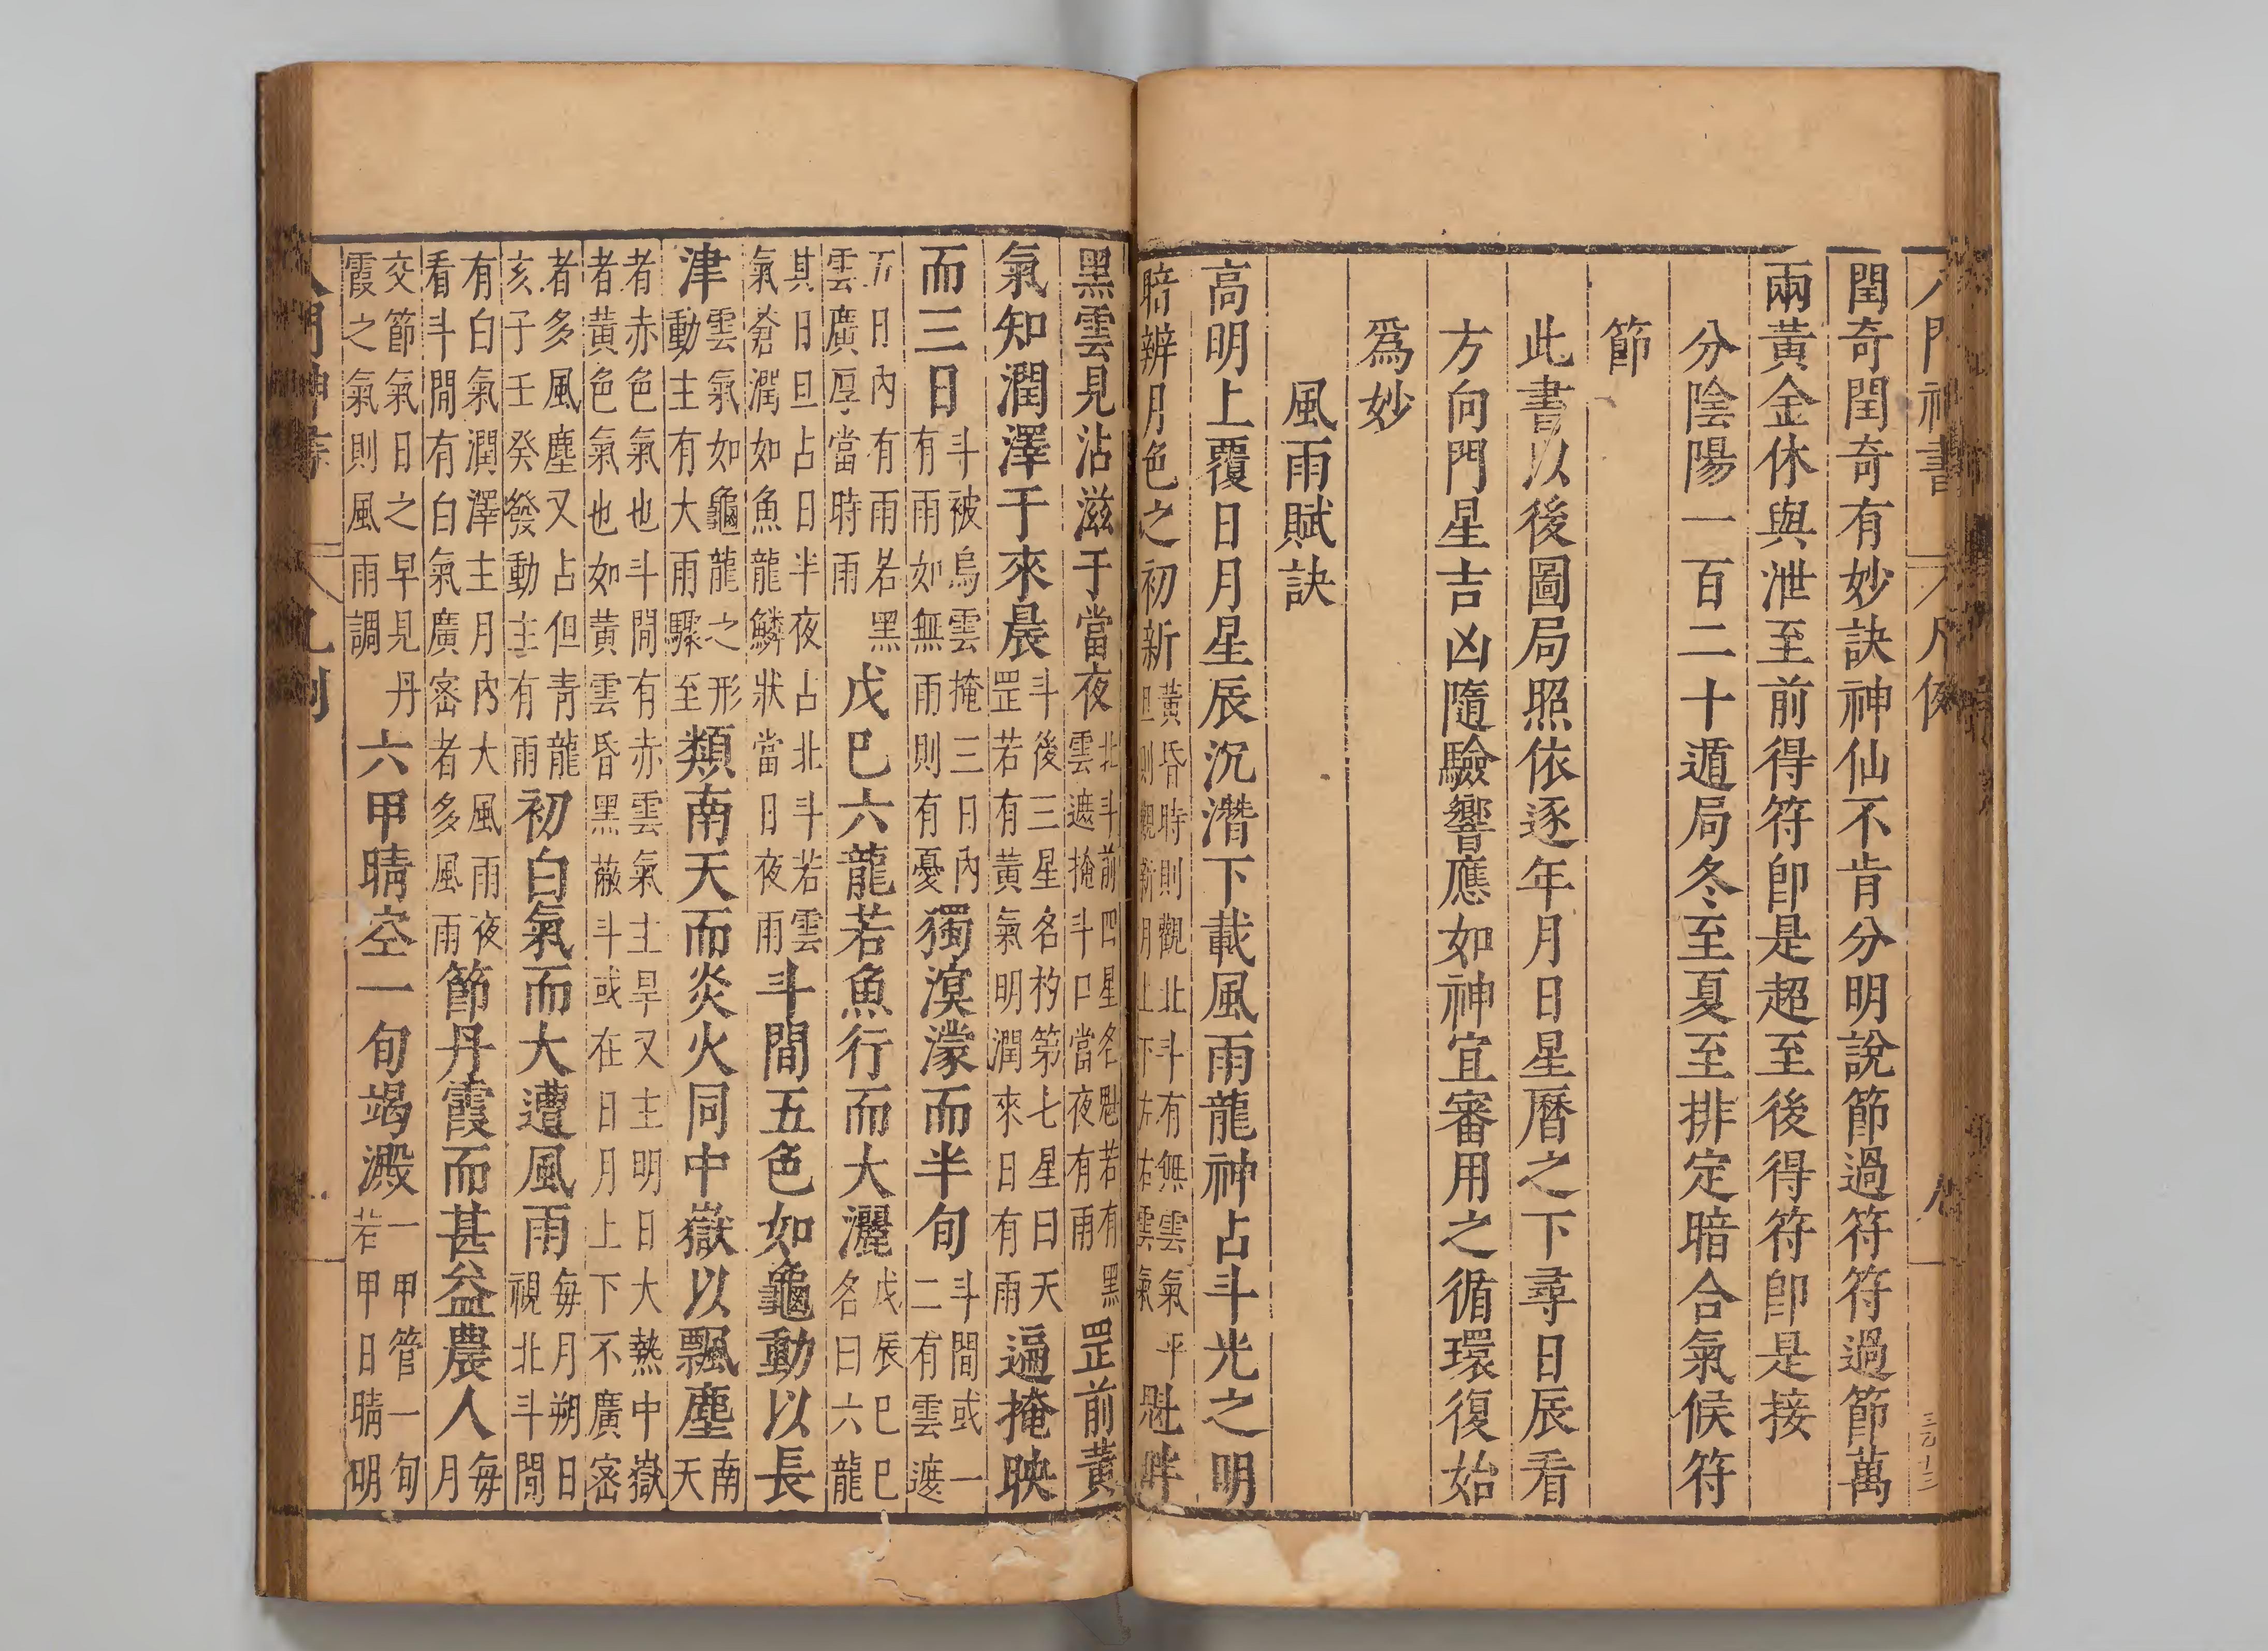 閏奇閏奇有妙訣神仙不肯分明說節過符符過節萬
兩黃金休與泄至前得符卽是超至後得符卽是接
分陰陽一百二十遁局冬至夏至排定暗合氣候符
節
此書以後圖局照依逐年月日星曆之下尋日辰看
方向門星吉凶隨驗響應如神宜審用之循環復始
爲妙
風雨賦訣
高明上覆日月星辰沉濳下載風雨龍神占斗光之明
暗辨月色之初新黃昏時則觀北斗有無雲氣平旦則觀新月上下左右雲氣魁畔
黑雲見沾滋于當夜北斗前四星名魁若有黑雲遮掩斗口當夜有雨罡前黃
氣知潤澤于來晨斗後三星名杓第七星曰天罡若有黃氣明潤來日有雨遍掩映
而三日斗被烏雲掩三日內有雨如無雨則有憂獨溟濛而半旬斗間或一二有雲遮
五日內有雨若黑雲廣厚當時雨戊巳六龍若魚行而大灑戊辰巳巳名曰六龍
其日旦占日半夜占北斗若雲氣蒼潤如魚龍鱗狀當日夜雨斗間五色如龜動以長
津雲氣如龜龍之形動主有大雨驟至類南天而炎火同中嶽以飄塵南天
者赤色氣也斗間有赤雲氣主旱又主明日大熱中嶽者黃色氣也如黃雲昏黑蔽斗或在日月上下不廣密
者多風塵又占但青龍亥子壬癸發動主有雨初白氣而大遭風雨每月朔日視北斗間
有白氣潤澤主月內大風雨夜看斗間有白氣廣密者多風雨節丹霞而甚益農人每月
交節氣日之早見丹霞之氣則風雨調六甲晴空一旬竭澱一甲管一旬若甲日晴明